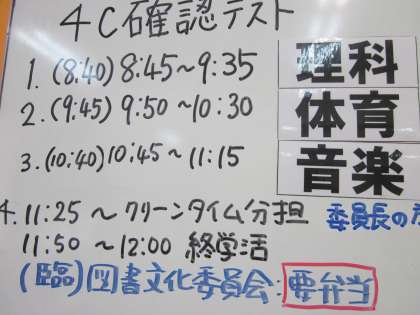 4C確認テスト
1. (8:40) 8:45~9:35 理科
2. (9:45) 9:50~10:30 体育
3. (10:40) 10:45~11:15 音楽
4. 11:25 ~ クリーンタイム分担 委員長の
11:50 ~ 12:00 終学活
(臨) 図書文化委員会:要弁当